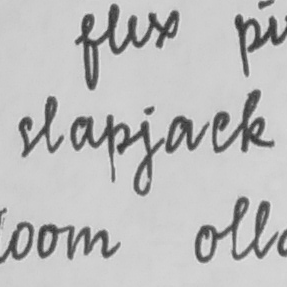 flux pi
slapjack
oom oll